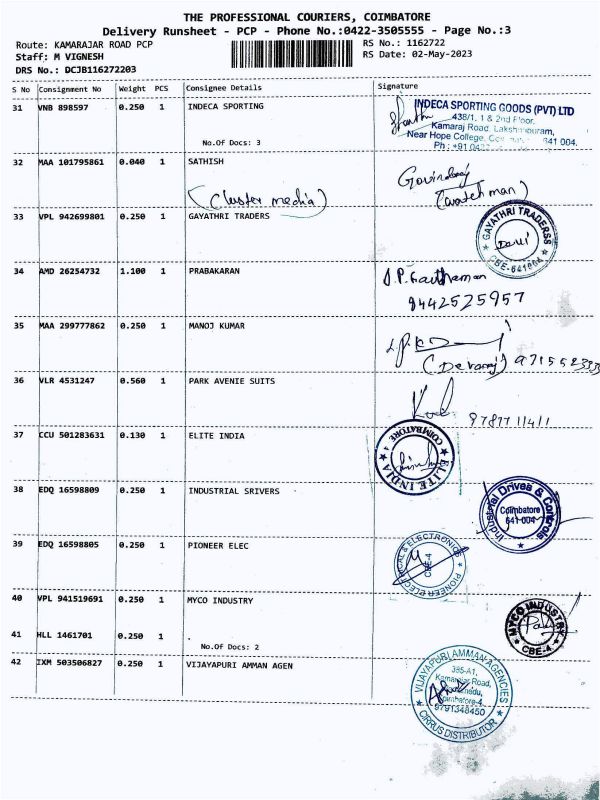 THE PROFESSIONAL COURIERS, COIMBATORE
Delivery Runsheet - PCP - Phone No.:0422-3505555 - Page No.:3
Route: KAMARAJAR ROAD PCP RS No.: 1162722
Staff: M VIGNESH RS Date: 02-May-2023
DRS No.: DCJB116272203
S No Consignment No Weight PCS Consignee Details Signature
31 VNB 898597 0.250 1 INDECA SPORTING
No.Of Docs: 3
INDECA SPORTING GOODS (PVT) LTD
438/1, 1 & 2nd Floor,
Kamaraj Road, Lakshmipuram,
Near Hope College, 641 004.
Ph: +91 0422
32 MAA 101795861 0.040 1 SATHISH
(Cluster media)
Govindaraj
(watch man)
33 VPL 942699801 0.250 1 GAYATHRI TRADERS
GAYATHRI TRADERSS
CBE-641004
34 AMD 26254732 1.100 1 PRABAKARAN
9442525957
35 MAA 299777862 0.250 1 MANOJ KUMAR
(Devaraj)
36 VLR 4531247 0.560 1 PARK AVENIE SUITS
9787711411
37 CCU 501283631 0.130 1 ELITE INDIA
ELITE INDIA
COIMBATORE - 4
38 EDQ 16598809 0.250 1 INDUSTRIAL SRIVERS
Industrial Drives & Controls
Coimbatore
641 004
39 EDQ 16598805 0.250 1 PIONEER ELEC
PIONEER ELECTRICAL & ELECTRONICS
CBE-4
40 VPL 941519691 0.250 1 MYCO INDUSTRY
MYCO INDUSTRY
CBE-4.
41 HLL 1461701 0.250 1 .
No.Of Docs: 2
42 IXM 503506827 0.250 1 VIJAYAPURI AMMAN AGEN
VIJAYAPURI AMMAN AGENCIES
385-A1,
Kamarajar Road,
Coimbatore-4
9791348450
CIRRUS DISTRIBUTOR